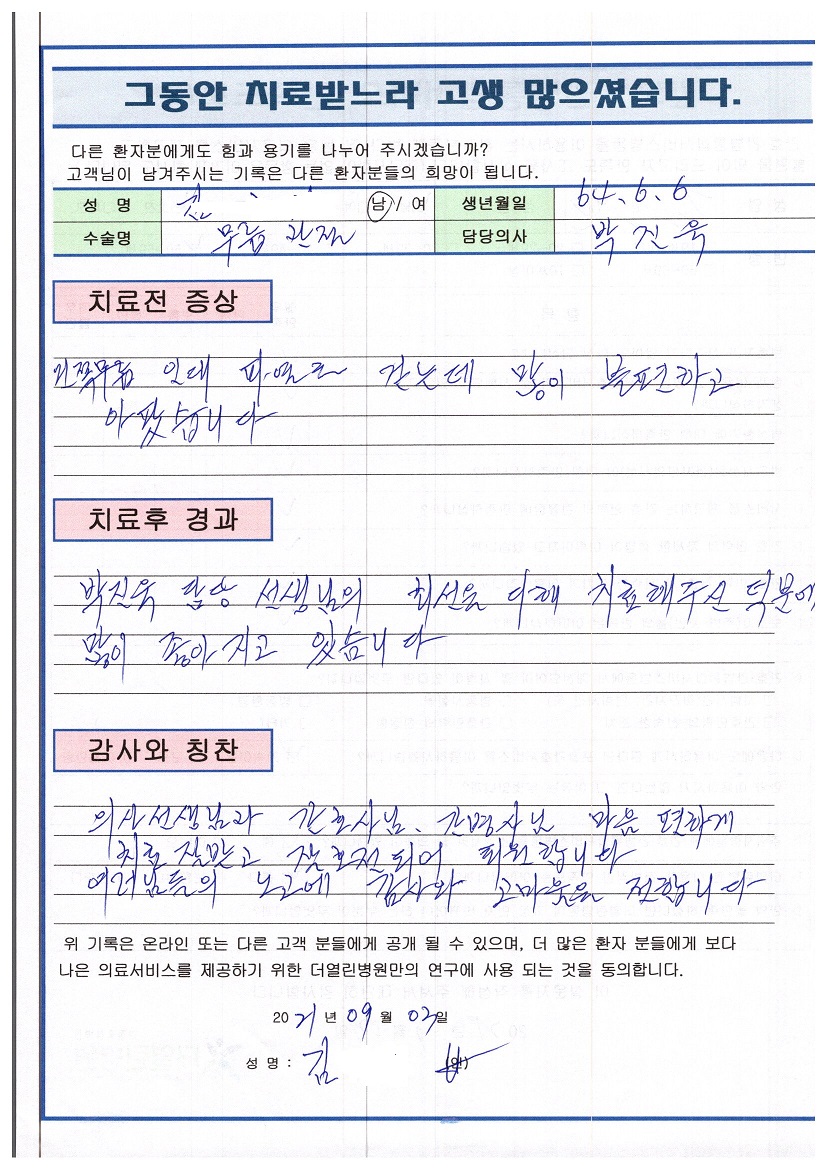 그동안 치료받느라 고생 많으셨습니다.
다른 환자분에게도 힘과 용기를 나누어 주시겠습니까?
고객님이 남겨주시는 기록은 다른 환자분들의 희망이 됩니다.
성 명 김 남 / 여 생년월일 64. 6. 6
수술명 무릎 관절 담당의사 박진욱
치료전 증상
무릎 인대 파열로 걷는데 많이 불편하고
아팠습니다
치료후 경과
박진욱 담당 선생님의 최선을 다해 치료해주신 덕분에
많이 좋아지고 있습니다
감사와 칭찬
의사선생님과 간호사님, 간병사님 마음 편하게
치료 잘받고 잘 호전되어 퇴원합니다
여러님들의 노고에 감사와 고마움을 전합니다
위 기록은 온라인 또는 다른 고객 분들에게 공개 될 수 있으며, 더 많은 환자 분들에게 보다
나은 의료서비스를 제공하기 위한 더열린병원만의 연구에 사용 되는 것을 동의합니다.
20 21 년 09 월 03 일
성 명 : 김 (인)